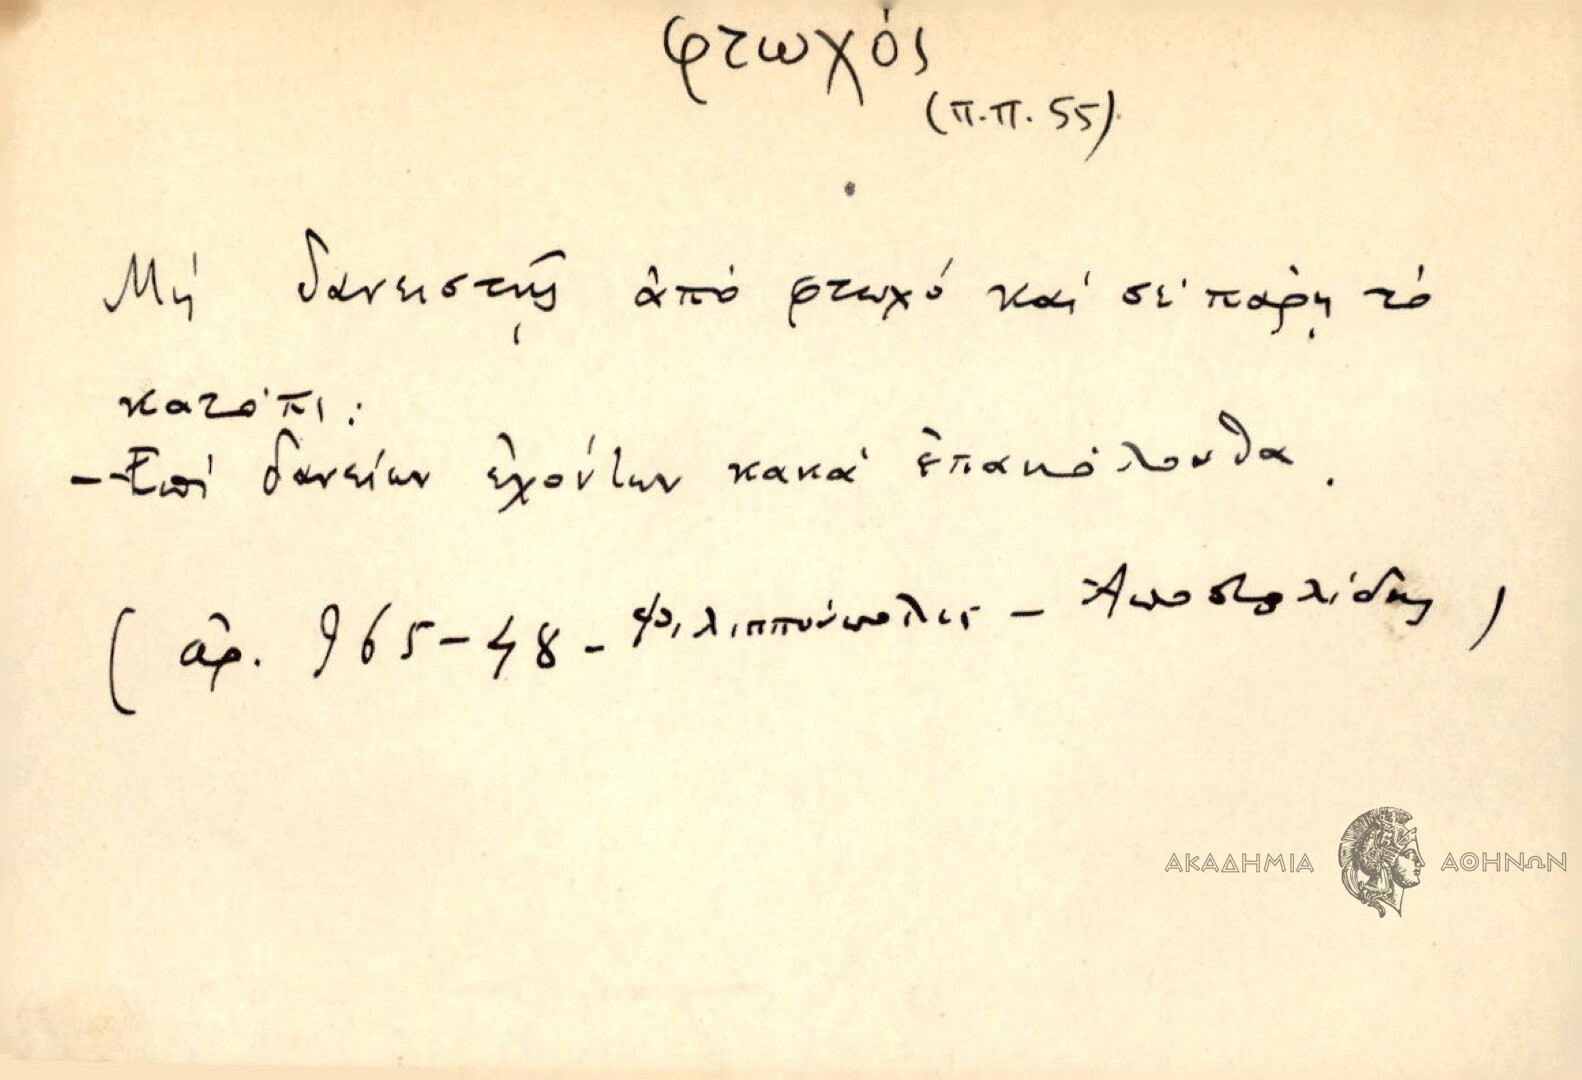 φτωχός
(π.π. 55)
Μή δανειστῇς ἀπό φτωχό καί σέ πάρῃ τό
κατόπι:
- Ἐπί δανείων ἐχόντων κακά ἐπακόλουθα.
(ἀρ. 965-48 - Φιλιππούπολις - Ἀποστολίδης)
ΑΚΑΔΗΜΙΑ ΑΘΗΝΩΝ